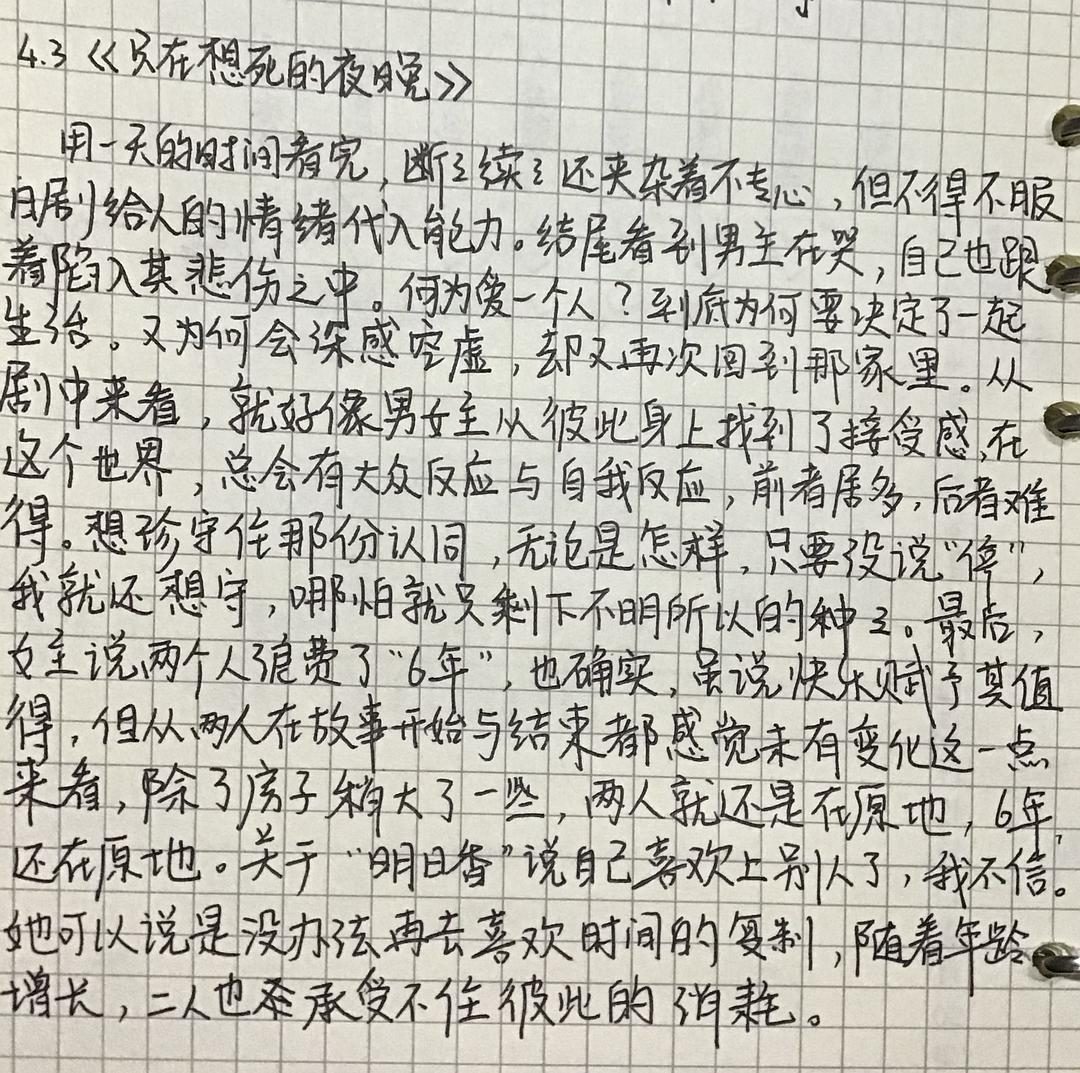 4.3《只在想死的夜晚》
用一天的时间看完，断々续々还夹杂着不专心，但不得不服
日剧给人的情绪代入能力。结尾看到男主在哭，自己也跟
着陷入其悲伤之中。何为爱一个人？到底为何要决定了一起
生活。又为何会深感空虚，却又再次回到那家里。从
剧中来看，就好像男女主从彼此身上找到了接受感，在
这个世界，总会有大众反应与自我反应，前者居多，后者难
得。想珍守住那份认同，无论是怎样，只要没说“停”，
我就还想守，哪怕就只剩下不明所以的种々。最后，
女主说两个人浪费了“6年”，也确实，虽说快乐赋予其值
得，但从两人在故事开始与结束都感觉未有变化这一点
来看，除了房子稍大了一些，两人就还是在原地，6年，
还在原地。关于“明日香”说自己喜欢上别人了，我不信。
她可以说是没办法再去喜欢时间的复制，随着年龄
增长，二人也承受不住彼此的消耗。